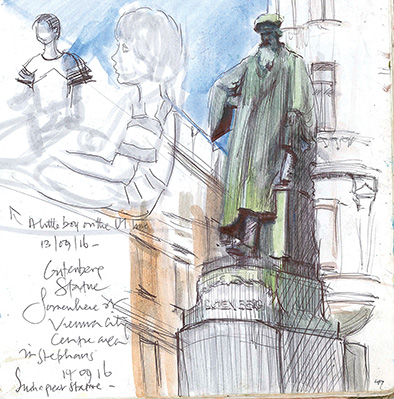 A little boy on the U1 line
13/09/16 -
Gutenberg
Statue
Somewhere in
Vienna City
Centre area
in Stephans
14 09 16
Such a great statue -
GUTENBERG
49